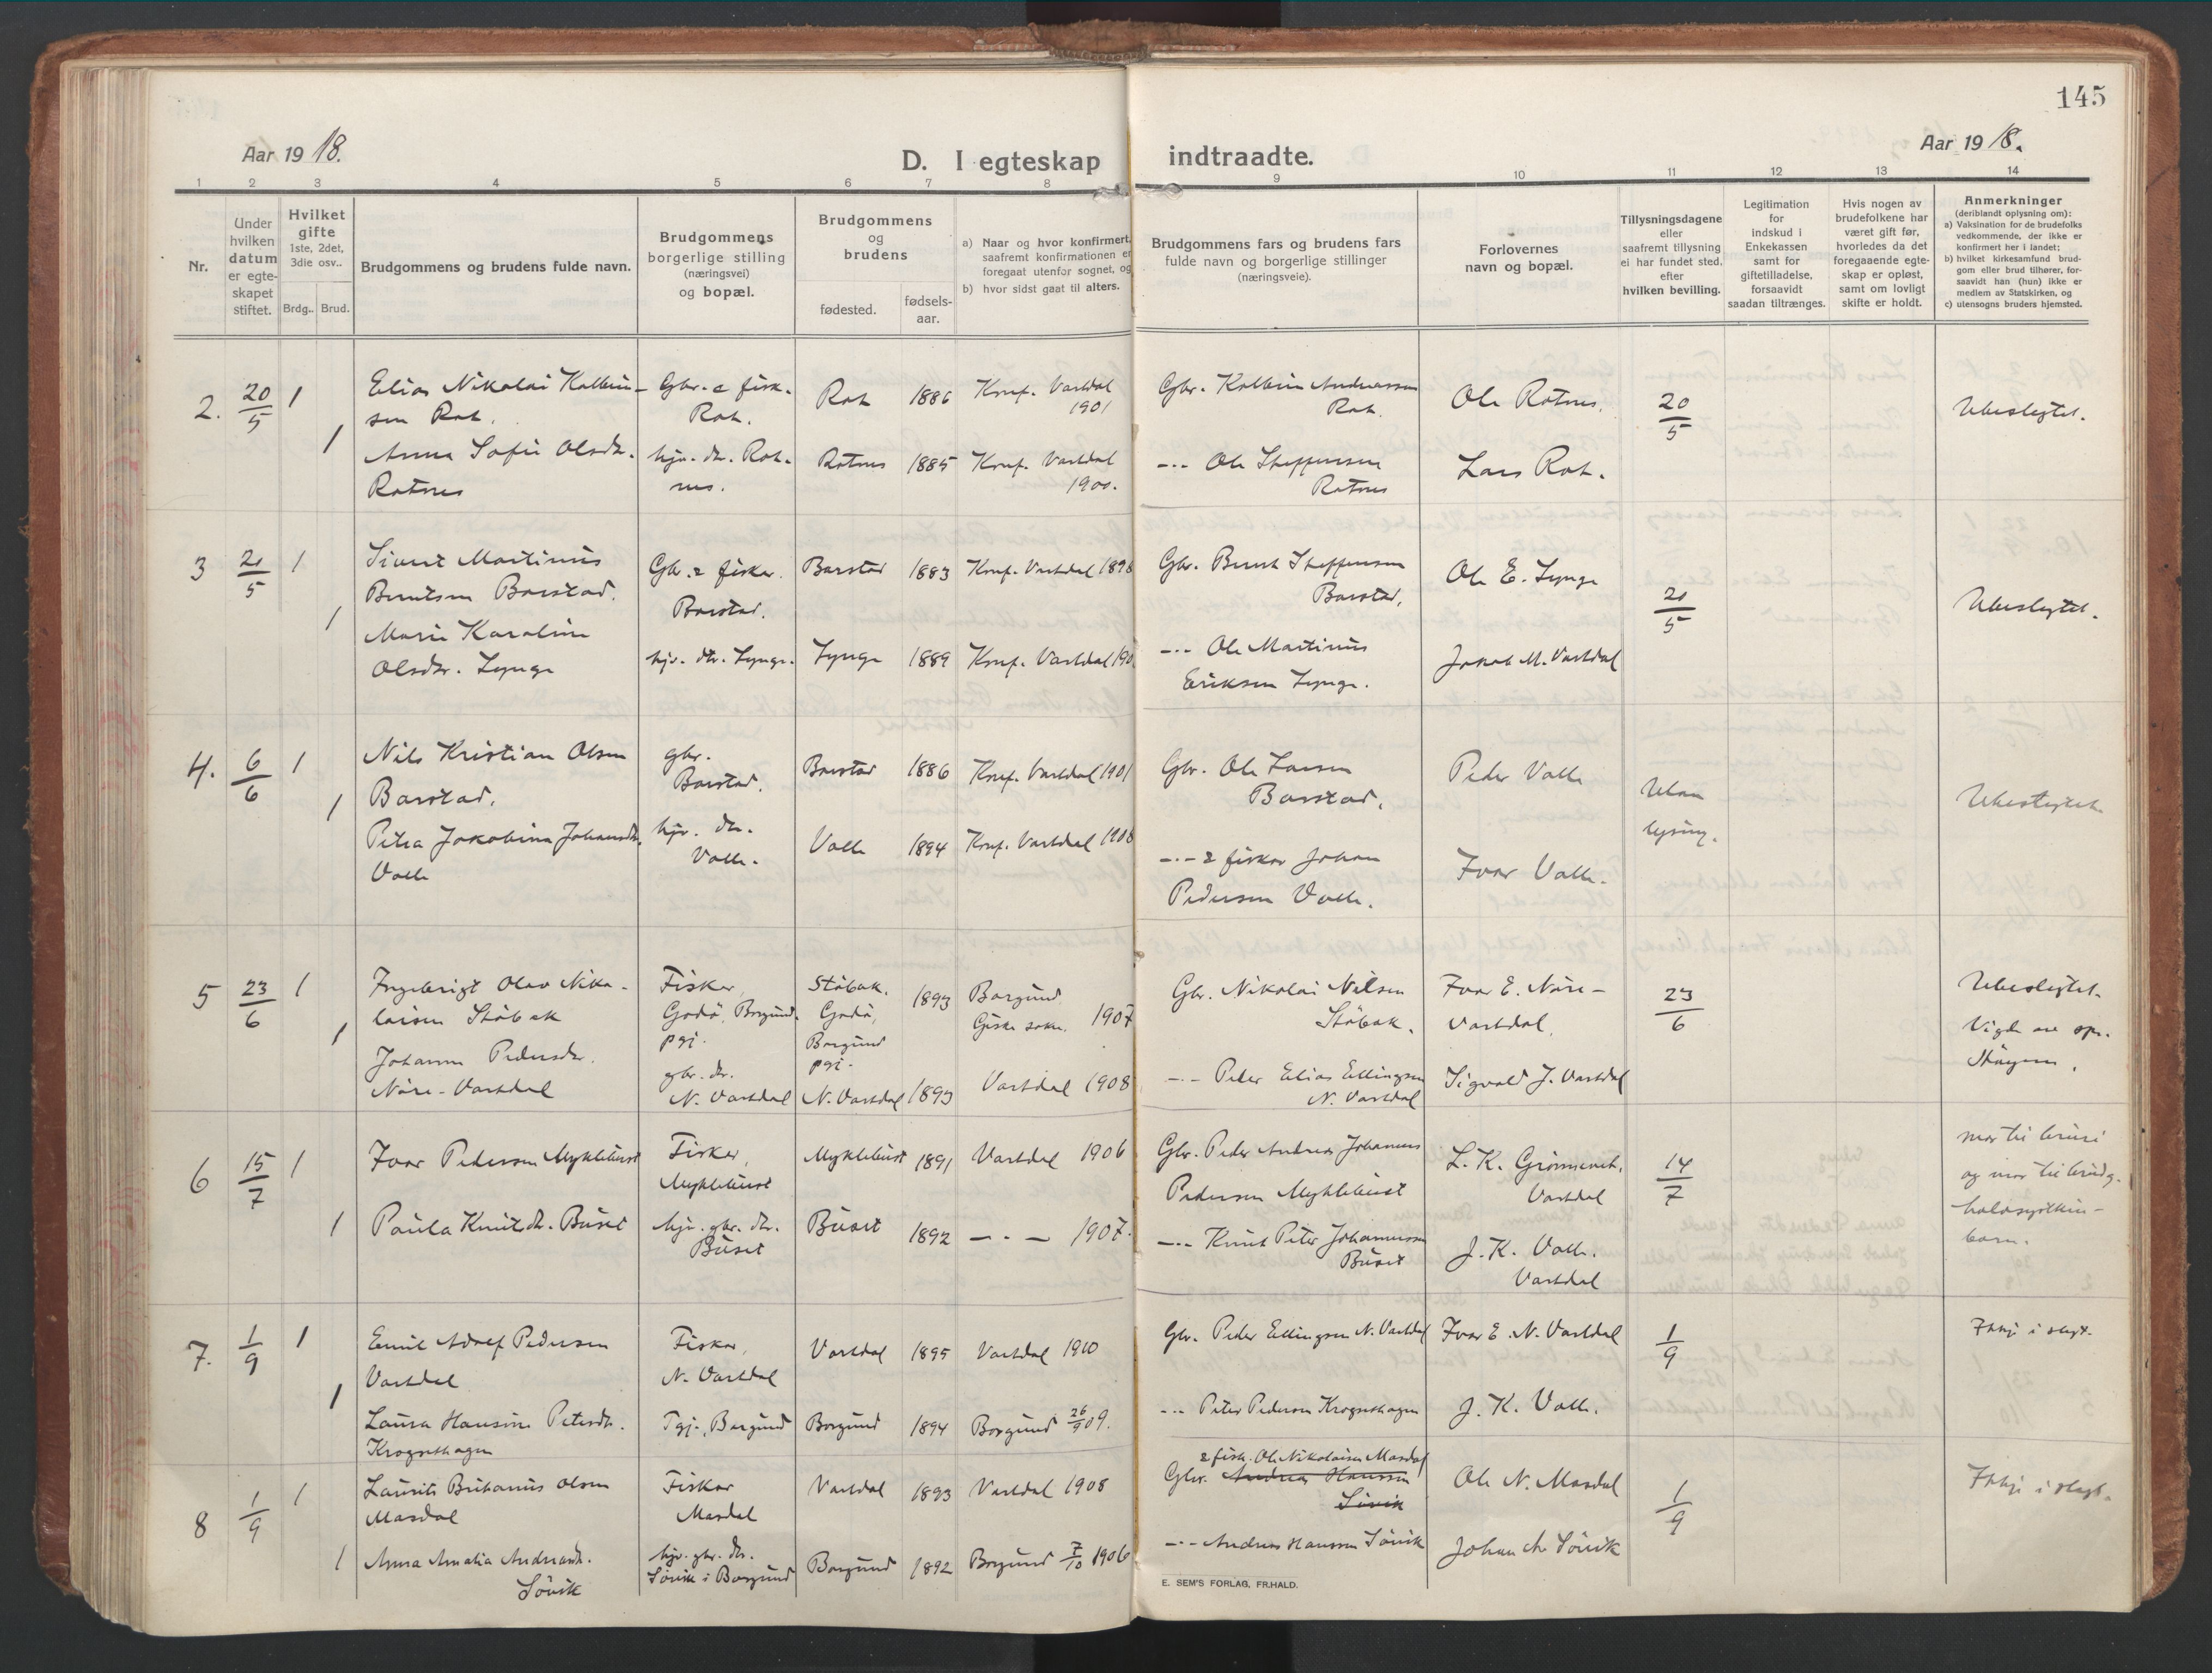 145
Aar 1918.
D. I egteskap indtraadte.
Aar 1918.
1 2 3 4 5 6 7 8 9 10 11 12 13 14
Nr.
Under
hvilken
datum
er egte-
skapet
stiftet.
Hvilket
gifte
1ste, 2det,
3die osv..
Brdg.. Brud.
Brudgommens og brudens fulde navn.
Brudgommens
borgerlige stilling
(næringsvei)
og bopæl.
Brudgommens
og
brudens
fødested.
fødsels-
aar.
a) Naar og hvor konfirmert,
saafremt konfirmationen er
foregaat utenfor sognet, og
b) hvor sidst gaat til alters.
Brudgommens fars og brudens fars
fulde navn og borgerlige stillinger
(næringsveie).
Forlovernes
navn og bopæl.
Tillysningsdagene
eller
saafremt tillysning
ei har fundet sted,
efter
hvilken bevilling.
Legitimation
for
indskud i
Enkekassen
samt for
giftetilladelse,
forsaavidt
saadan tiltrænges.
Hvis nogen av
brudefolkene har
været gift før,
hvorledes da det
foregaaende egte-
skap er opløst,
samt om lovligt
skifte er holdt.
Anmerkninger
(deriblandt oplysning om):
a) Vaksination for de brudefolks
vedkommende, der ikke er
konfirmert her i landet;
b) hvilket kirkesamfund brud-
gom eller brud tilhører, for-
saavidt han (hun) ikke er
medlem av Statskirken, og
c) utensogns bruders hjemsted.
2. 20/5 1
Elias Nikolai Kolbein-
sen Rot.
Gbr. & fisk.
Rot.
Rot 1886 Konf. Vartdal
1901
Gbr. Kolbein Andreassen
Rot.
Ole Rotnes.
20/5
Ubeslegtet.
1
Anna Sofie Olsdtr.
Rotnes
hjv. dtr. Rot-
nes.
Rotnes 1885 Konf. Vartdal
1900.
-"- Ole Steffensen
Rotnes
Lars Rot.
3 21/5 1
Sivert Martinus
Berntsen Barstad.
Gbr. & fisker.
Barstad.
Barstad 1883 Konf. Vartdal 1898
Gbr. Bernt Steffensen
Barstad,
Ole E. Lynge
21/5
Ubeslegtet.
1
Marie Karoline
Olsdtr. Lynge
hjv. dtr. Lynge.
Lynge 1889 Konf. Vartdal 190
-"- Ole Martinus
Eriksen Lynge.
Jakob M. Vartdal
4. 6/6 1
Nils Kristian Olsen
Barstad.
gbr.
Barstad.
Barstad 1886 Konf. Vartdal 1901
Gbr. Ole Larsen
Barstad.
Peder Valle
Uten
lysing.
Ubeslegtet
1
Petra Jakobina Johansdtr.
Valle
hjv. dtr.
Valle.
Valle 1894 Konf. Vartdal 1908
-"- & fisker Johan
Pedersen Valle.
Ivar Valle.
5 23/6 1
Ingebrigt Olav Niko-
laisen Støbak
Fisker,
Godø, Borgund.
pgj.
Støbak,
Godø,
Borgund
pgj.
1893 Borgund
Giske sokn. 1907
Gbr. Nikolai Nilsen
Støbak.
Ivar E. Nøre-
vartdal.
23/6
Ubeslegtet.
Vigde av spr.
Støyen.
1
Johanne Pedersdtr.
Nøre-Vartdal
gbr. dtr.
N. Vartdal
N. Vartdal 1893 Vartdal 1908
-"- Peder Elias Ellingsen
N. Vartdal
Sigvald J. Vartdal
6 15/7 1
Ivar Pedersen Myklebust
Fisker,
Myklebust
Myklebust 1891 Vartdal 1906
Gbr. Peder Andreas Johannes
Pedersen Myklebust
L. K. Grønnevet,
Vartdal
14/7
mor til brura
og mor til brudg.
halvsyskin-
born.
1
Paula Knutsdtr. Buset
hjv. gbr. dtr.
Buset
Buset 1892 -"- 1907.
-"- Knut Peter Johannessen
Buset
J. K. Valle.
Vartdal
7. 1/9 1
Emil Adolf Pedersen
Vartdal
Fisker,
N. Vartdal
Vartdal 1895 Vartdal 1910
Gbr. Peder Ellingsen N. Vartdal
Ivar E. N. Vartdal
1/9
Ikkje i slegt.
1
Laura Hansine Petersdtr.
Krogsethagen
Tgj., Borgund
Borgund 1894 Borgund 26/9 09.
-"- Peter Pedersen Krogsethagen
J. K. Valle.
8 1/9 1
Laurits Britanius Olsen
Masdal
Fisker
Masdal
Vartdal 1893 Vartdal 1908
& fisk. Ole Nikolaisen Masdal
Gbr. Andreas Hanssen
Søvik
Ole N. Masdal
1/9
Ikkje i slegt.
1
Anna Amalia Andreasdtr.
Søvik
hjv. gbr. dtr.
Søvik i Borgund
Borgund 1892 Borgund 7/10 1906
-"- Andreas Hanssen Søvik
Johan A. Søvik
E. SEM'S FORLAG, FR.HALD.